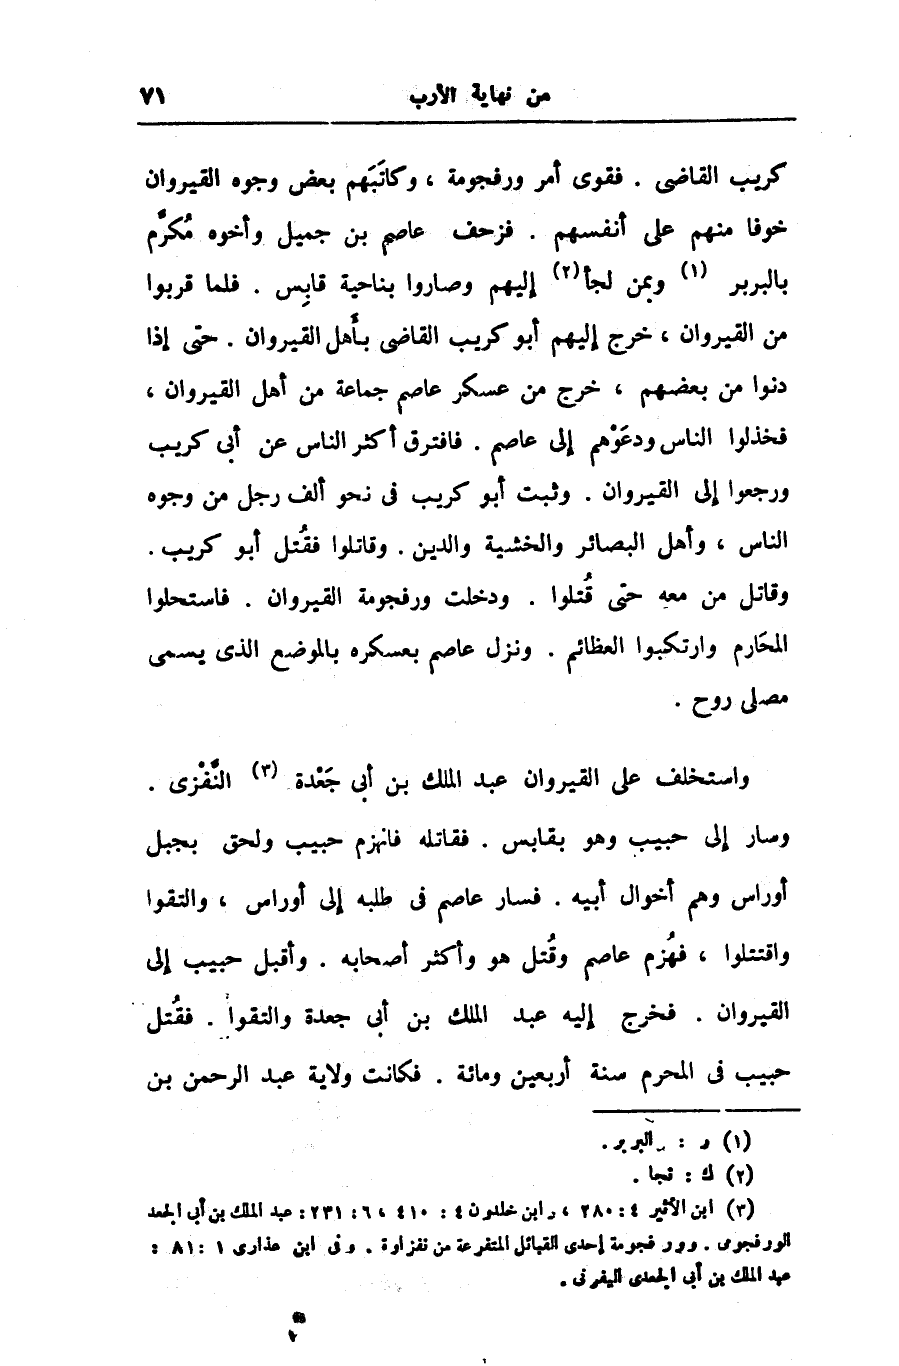 من نهاية الأرب ٧١
كريب القاضى . فقوى أمر ورفجومة ، وكاتَبَهم بعض وجوه القيروان
خوفا منهم على أنفسهم . فزحف عاصم بن جميل وأخوه مُكرَّم
بالبربر (١) وبمن لجأ(٢) إليهم وصاروا بناحية قابس . فلما قربوا
من القيروان ، خرج إليهم أبو كريب القاضى بأهل القيروان . حتى إذا
دنوا من بعضهم ، خرج من عسكر عاصم جماعة من أهل القيروان ،
فخذلوا الناس ودعَوْهم إلى عاصم . فافترق أكثر الناس عن أبى كريب
ورجعوا إلى القيروان . وثبت أبو كريب فى نحو ألف رجل من وجوه
الناس ، وأهل البصائر والخشية والدين . وقاتلوا فقُتل أبو كريب .
وقاتل من معه حتى قُتلوا . ودخلت ورفجومة القيروان . فاستحلوا
المحَارم وارتكبوا العظائم . ونزل عاصم بعسكره بالموضع الذى يسمى
مصلى روح .
واستخلف على القيروان عبد الملك بن أبى جَعْدة (٣) النَّفْزى .
وسار إلى حبيب وهو بقابس . فقاتله فانهزم حبيب ولحق بجبل
أوراس وهم أخوال أبيه . فسار عاصم فى طلبه إلى أوراس ، والتقوا
واقتتلوا ، فهُزم عاصم وقُتل هو وأكثر أصحابه . وأقبل حبيب إلى
القيروان . فخرج إليه عبد الملك بن أبى جعدة والتقوا . فقُتل
حبيب فى المحرم سنة أربعين ومائة . فكانت ولاية عبد الرحمن بن
(١) ر : البربر .
(٢) ك : نجا .
(٣) ابن الأثير ٤ : ٢٨٠ ، وابن خلدون ٤ : ٤١٠ ، ٦ : ٢٣١ : عبد الملك بن أبى الجعد
الورفجومى . وورفجومة إحدى القبائل المتفرعة من نفزاوة . وفى ابن عذارى ١ : ٨١ :
عبد الملك بن أبى الجعدى اليفرنى .